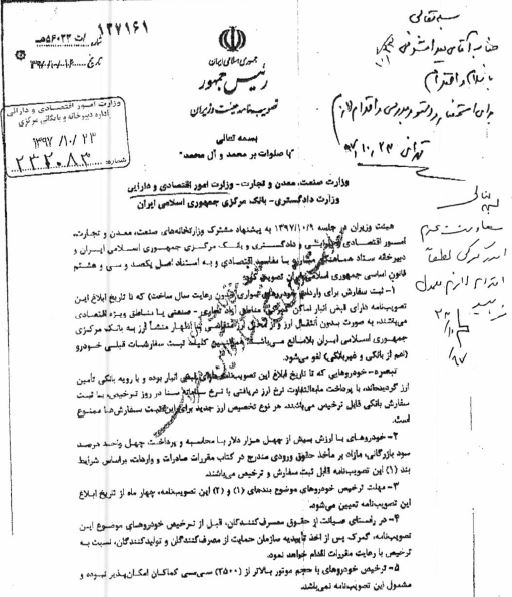 ۱۳۷۱۶۱
شماره /ت ۵۶۰۳۳هـ
تاریخ ۱۳۹۷/۱۰/۱۶
جمهوری اسلامی ایران
رئیس جمهور
تصویب نامه هیئت وزیران
بسمه تعالی
"با صلوات بر محمد و آل محمد"
وزارت امور اقتصادی و دارائی
اداره دبیرخانه و بایگانی مرکزی
۱۳۹۷/۱۰/۲۳
شماره: ۲۳۲۰۸۲
بسمه تعالی
وزارت صنعت، معدن و تجارت- وزارت امور اقتصادی و دارایی
وزارت دادگستری- بانک مرکزی جمهوری اسلامی ایران
هیئت وزیران در جلسه ۱۳۹۷/۱۰/۹ به پیشنهاد مشترک وزارتخانه‌های صنعت، معدن و تجارت،
امور اقتصادی و دارایی و دادگستری و بانک مرکزی جمهوری اسلامی ایران و
دبیرخانه ستاد هماهنگی مبارزه با مفاسد اقتصادی و به استناد اصل یکصد و سی و هشتم
قانون اساسی جمهوری اسلامی ایران تصویب کرد:
۱- ثبت سفارش برای واردات خودروهای سواری (بدون رعایت سال ساخت) که تا تاریخ ابلاغ این
تصویب‌نامه دارای قبض انبار اماکن گمرکی، مناطق آزاد تجاری - صنعتی یا مناطق ویژه اقتصادی
می‌باشند، به صورت بدون انتقال ارز و از محل ارز متقاضی با اظهار منشأ ارز به بانک مرکزی
جمهوری اسلامی ایران بلامانع می‌باشد. همچنین کلیه ثبت سفارشات قبلی خودرو
(اعم از بانکی و غیربانکی) لغو می‌شود.
تبصره- خودروهایی که تا تاریخ ابلاغ این تصویب‌نامه دارای قبض انبار بوده و با رویه بانکی تأمین
ارز گردیده‌اند، با پرداخت مابه‌التفاوت نرخ ارز دریافتی با نرخ سامانه سنا در روز ترخیص، با ثبت
سفارش بانکی قابل ترخیص می‌باشند. هر نوع تخصیص ارز جدید برای این ثبت سفارش‌ها ممنوع
است.
۲- خودروهای با ارزش بیش از چهل هزار دلار با محاسبه و پرداخت چهل واحد درصد
سود بازرگانی، مازاد بر مأخذ حقوق ورودی مندرج در کتاب مقررات صادرات و واردات، براساس شرایط
بند (۱) این تصویب‌نامه قابل ثبت سفارش و ترخیص می‌باشند.
۳- مهلت ترخیص خودروهای موضوع بندهای (۱) و (۲) این تصویب‌نامه، چهار ماه از تاریخ ابلاغ
این تصویب‌نامه تعیین می‌شود.
۴- در راستای صیانت از حقوق مصرف‌کنندگان، قبل از ترخیص خودروهای موضوع این
تصویب‌نامه، گمرک پس از اخذ تأییدیه سازمان حمایت از مصرف‌کنندگان و تولیدکنندگان، نسبت به
ترخیص با رعایت مقررات اقدام خواهد نمود.
۵- ترخیص خودروهای با حجم موتور بالاتر از (۲۵۰۰) سی‌سی کماکان امکان‌پذیر نبوده و
مشمول این تصویب‌نامه نمی‌باشد.